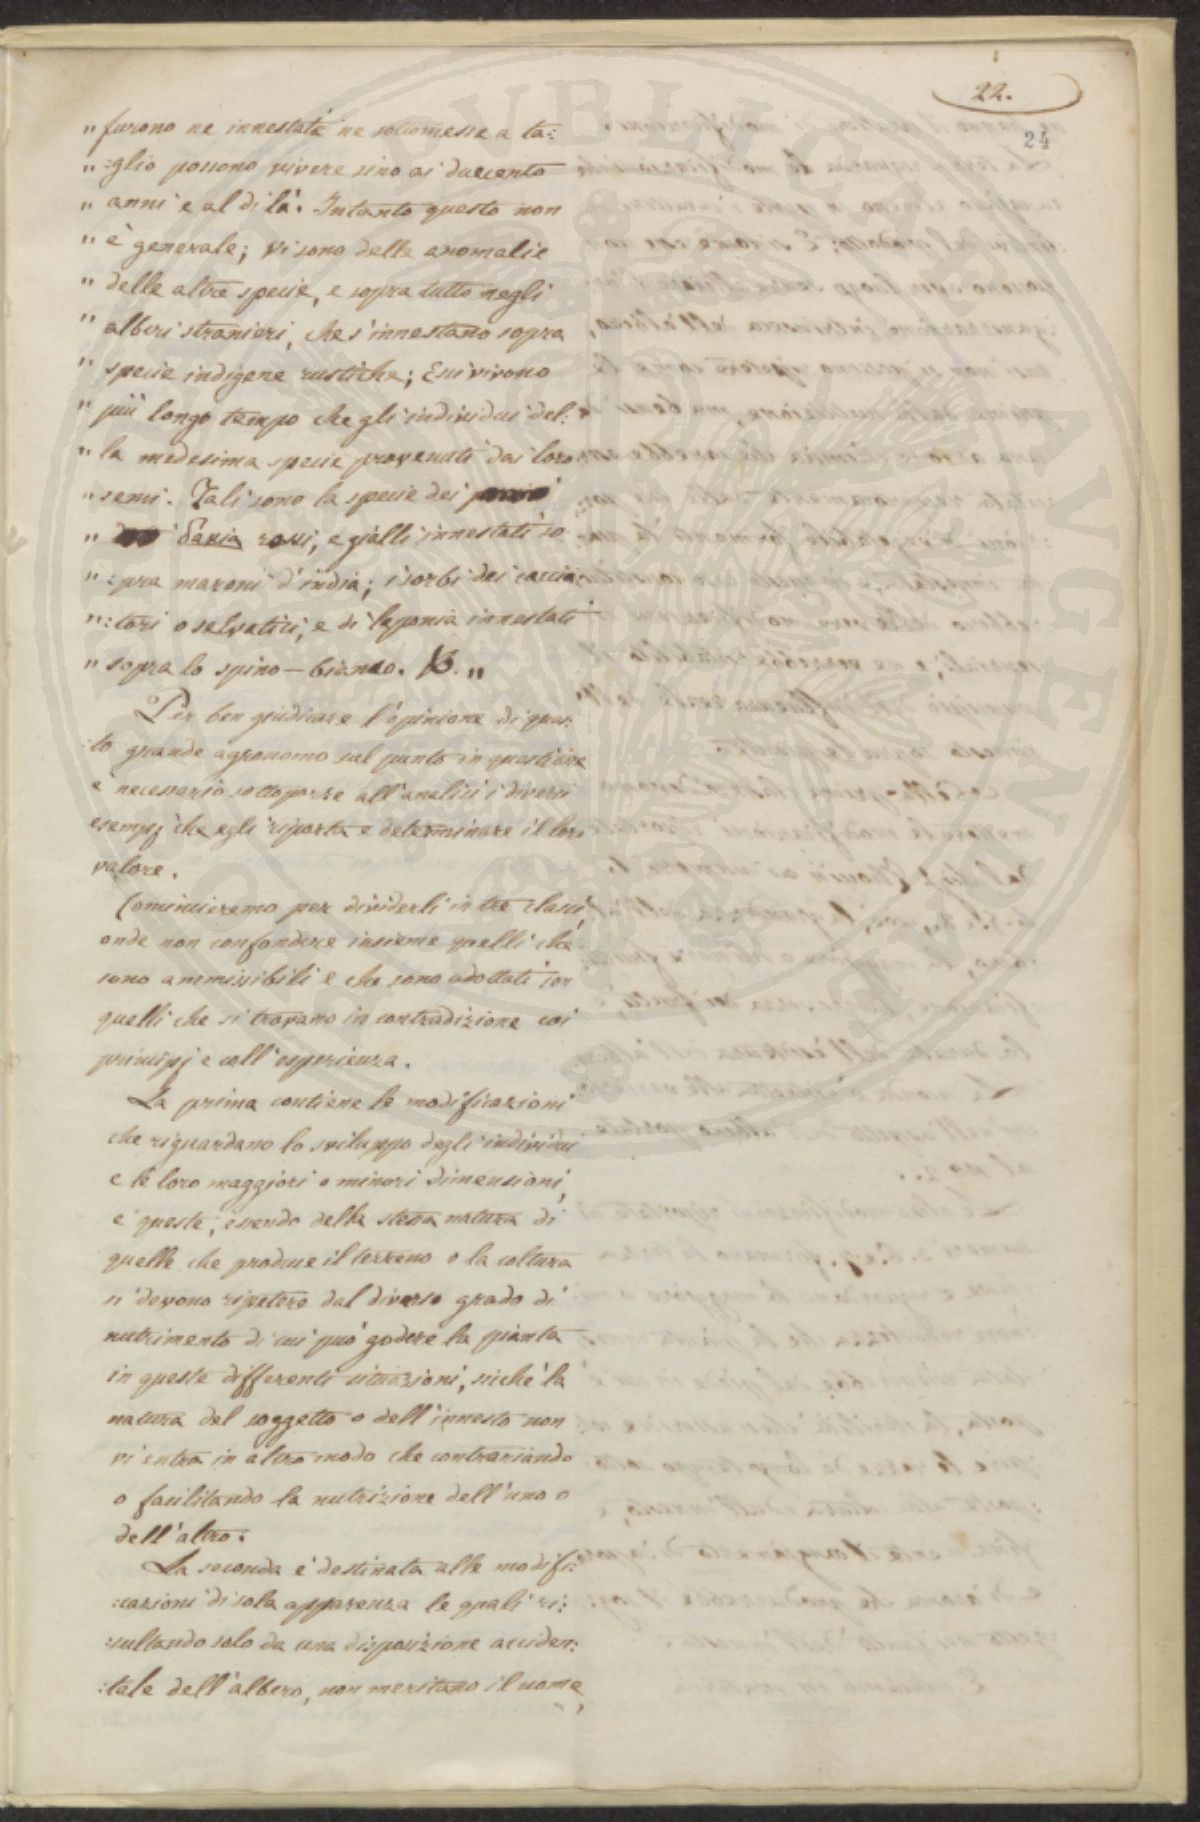 22.
24
„ furono ne innestate ne sottomesse a ta:
„ :glio possono vivere sino ai duecento
„ anni e al di là. Intanto questo non
„ è generale; vi sono delle anomalie
„ delle altre specie, e sopra tutto negli
„ alberi stranieri, che s'innestano sopra
„ specie indigene rustiche; Essi vivono
„ più longo tempo che gli individui del:
„ la medesima specie provenuti dai loro
„ semi. Tali sono la specie dei
„ Pavia rossi, e gialli innestati so
„ :pra maroni d'india; i sorbi dei caccia:
„ :tori o selvatici, e di laponia innestati
„ sopra lo spino – bianco. „
Per ben giudicare l'opinione di ques:
:to grande agronomo sul punto in questione
è necessario sottoporre all'analisi i diversi
esempj che egli riporta e determinare il loro
valore.
Comincieremo per dividerli in tre classi,
onde non confondere insieme quelli che
sono ammissibili e che sono adottati con
quelli che si trovano in contradizione coi
principj e coll'esperienza.
La prima contiene le modificazioni
che riguardano lo sviluppo degli individui
e le loro maggiori o minori dimensioni,
e queste, essendo della stessa natura di
quelle che produce il terreno o la coltura
si devono ripetere dal diverso grado di
nutrimento di cui può godere la pianta
in queste differenti situazioni, sichè la
natura del soggetto o dell'innesto non
vi entra in altro modo che contrariando
o facilitando la nutrizione dell'uno o
dell'altro.
La seconda è destinata alle modifi:
:cazioni di sola apparenza le quali ri:
:sultando solo da una disposizione acciden:
:tale dell'albero, non meritano il nome,